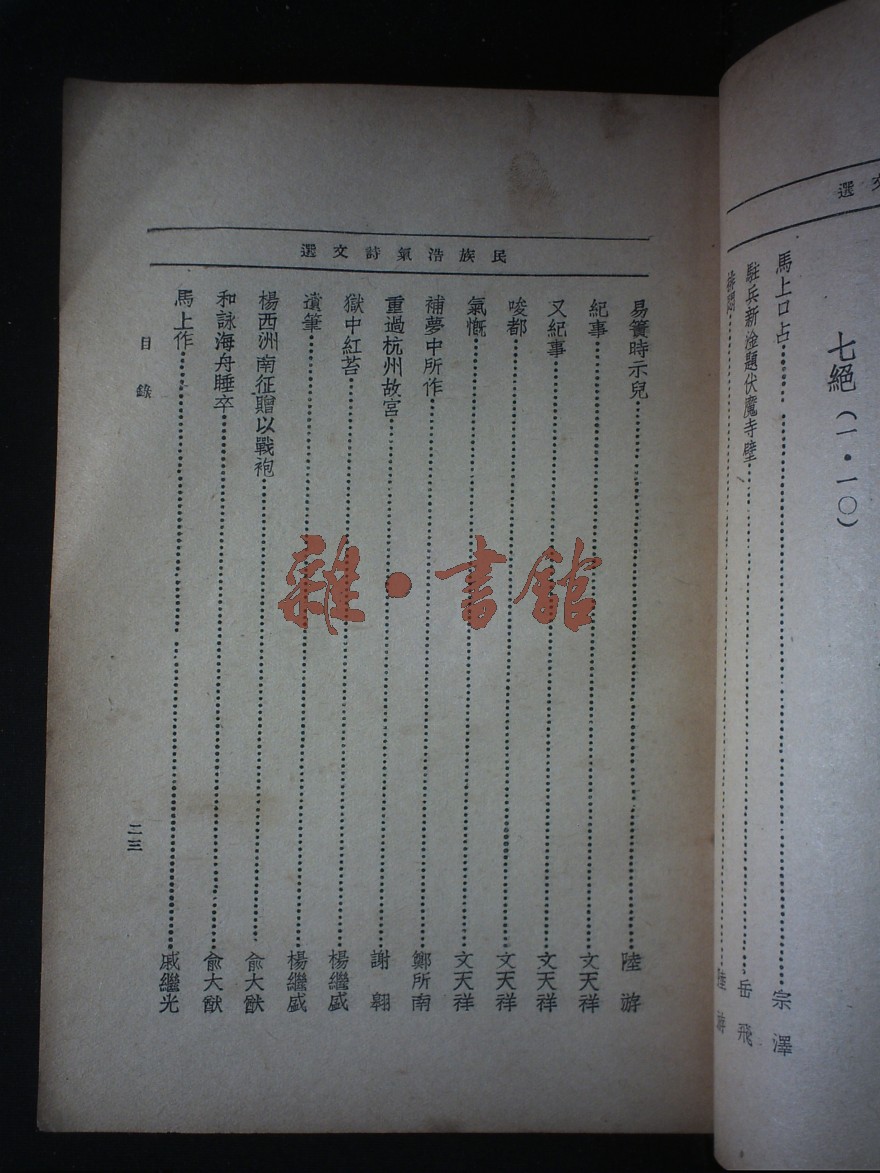 文選
七絕（一·一〇）
馬上口占……宗澤
駐兵新淦題伏魔寺壁……岳飛
……陸游
民族浩氣詩文選
易簀時示兒……陸游
紀事……文天祥
又紀事……文天祥
唆都……文天祥
氣慨……文天祥
補夢中所作……鄭所南
重過杭州故宮……謝翱
獄中紅苔……楊繼盛
遺筆……楊繼盛
楊西洲南征贈以戰袍……俞大猷
和詠海舟睡卒……俞大猷
馬上作……戚繼光
目錄
二三
雜·書館